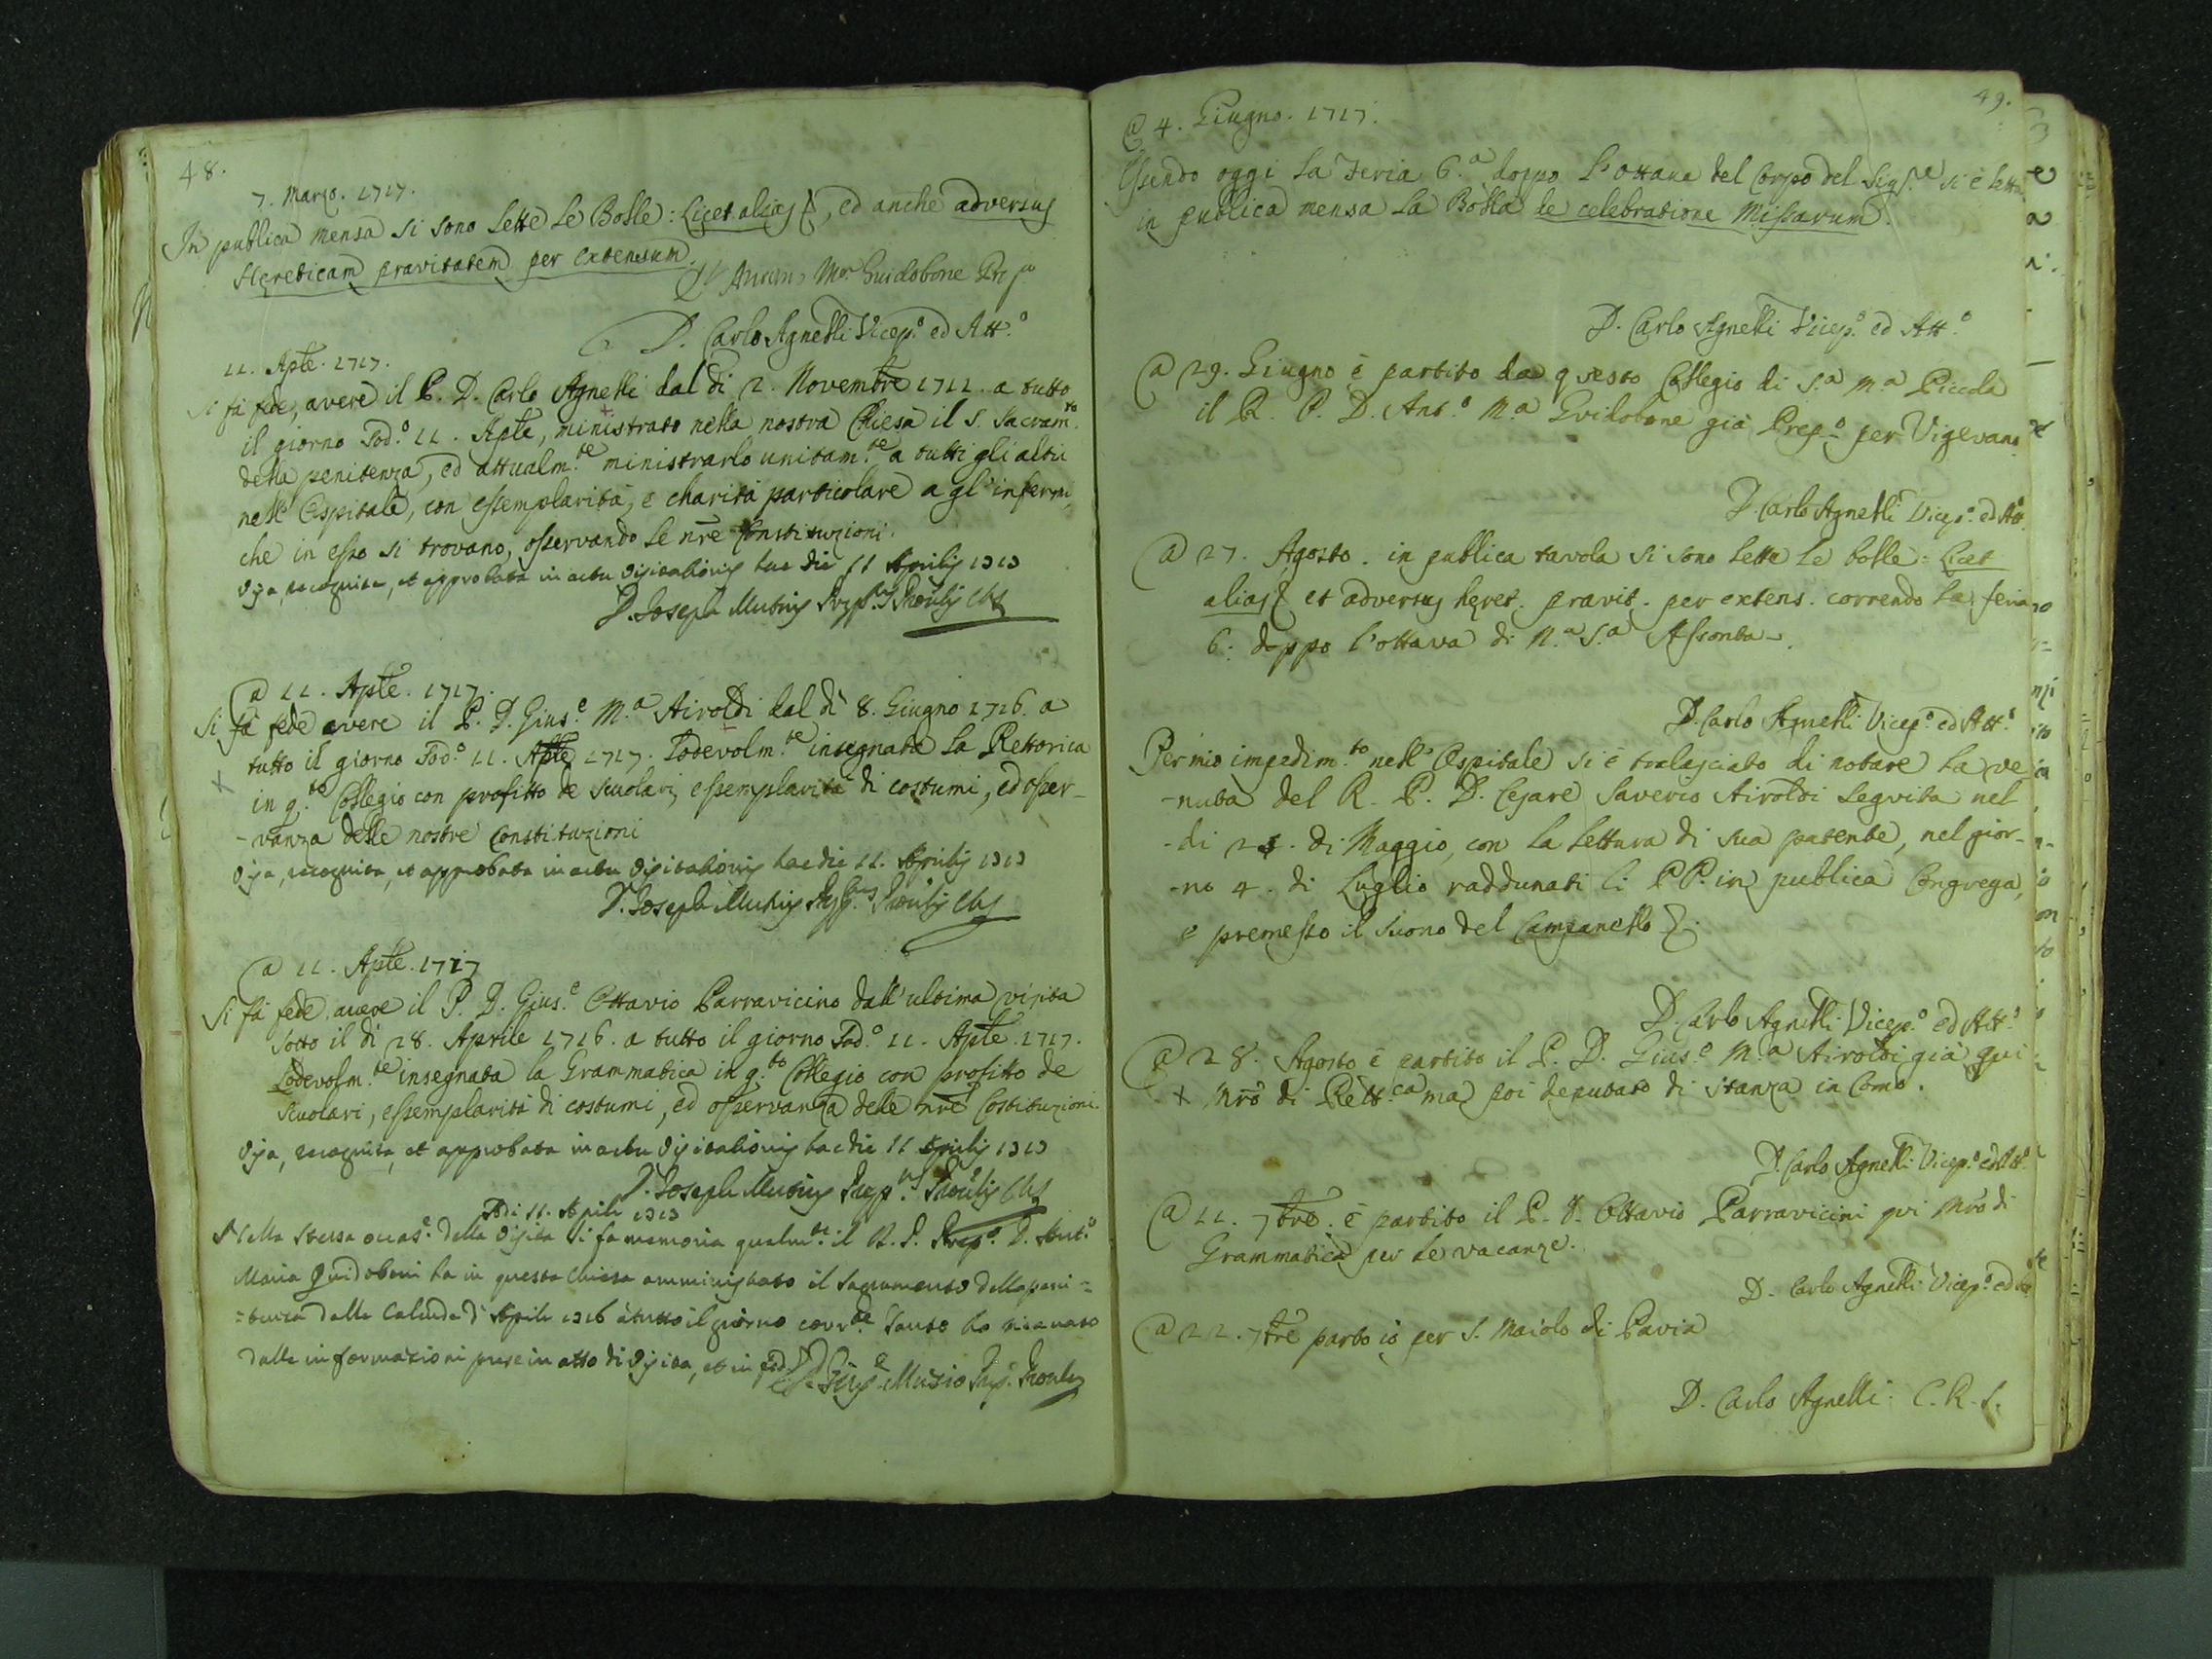 48.
7. Marzo. 1717.
In publica mensa si sono lette le Bolle: Licet alias &, ed anche adversus
Hereticam pravitatem per extensum.
Guidobone
D. Carlo Agnelli Vicep.º ed Att.º
11. Aple. 1717.
Si fà fede, avere il P. D. Carlo Agnelli dal dì 2. Novembre 1711. a tutto
il giorno Sod.º 11. Aple, ministrato nella nostra Chiesa il S. Sacram.to
della penitenza, ed attualm.te ministrarlo unitam.te a tutti gli altri
nell' Ospitale, con essemplarità, e charità particolare a gl' infermi,
che in esso si trovano, osservando le nre Constituzioni.
Visa, recognita, et approbata in actu visitationis hac die 11 Aprilis 1717
D. Joseph Mutius Prep.tus Proulis
@ 11. Aple. 1717.
Si fà fede avere il P. D. Gius.e M.a Airoldi dal dì 8. Giugno 1716. a
tutto il giorno Sod.º 11. Aple 1717. Lodevolm.te insegnata la Rettorica
in q.to Collegio con profitto de scuolari, essemplarità di costumi, ed osser-
-vanza delle nostre Constituzioni
Visa, recognita, et approbata in actu visitationis hac die 11. Aprilis 1717
D. Joseph Mutius Prep.tus Proulis
@ 11. Aple. 1717
Si fà fede avere il P. D. Gius.e Ottavio Parravicino dall' ultima visita
sotto il dì 28. Aprile 1716. a tutto il giorno Sod.º 11. Aple. 1717.
Lodevolm.te insegnata la Grammatica in q.to Collegio con profitto de
scuolari, essemplarità di costumi, ed osservanza delle nre Costituzioni.
Visa, recognita, et approbata in actu visitationis hac die 11 Aprilis 1717
D. Joseph Mutius Prep.tus Proulis
Adi 11. Aprile 1717
Nella stessa occas.e della visita si fa memoria qualm.te il R. P. Prep.º D. Ant.º
Maria Guidoboni ha in questa Chiesa amministrato il Sacramento della peni=
=tenza dalle Calende d' Aprile 1716 à tutto il giorno corr.te Tanto ho ricavato
dalle informazioni prese in atto di visita, et in fed.
D. Gius.e Muzio Prep. Proule
49.
@ 4. Giugno. 1717.
Essendo oggi la Feria 6.a doppo l'ottava del Corpo del Sig.re si è letta
in publica mensa la Bolla de celebratione Missarum.
D. Carlo Agnelli Vicep.º ed Att.º
@ 29. Giugno è partito da questo Collegio di S.a M.a Piccola
il R. P. D. Ant.º M.a Guidobone già Prep.º per Vigevano
D. Carlo Agnelli Vicep.º ed Att.
@ 27. Agosto. in publica tavola si sono lette le bolle: Licet
alias & et adversus heret. pravit. per extens. correndo la feria
6. doppo l'ottava di N.a S.a Assonta.
D. Carlo Agnelli Vicep.º ed Att.º
Per mio impedim.to nell' Ospitale si è tralasciato di notare la ve
-nuta del R. P. D. Cesare Saverio Airoldi seguita nel
-di 21. di Maggio, con la lettura di sua patente, nel gior-
-no 4. di Luglio raddunati li PP. in publica Congrega,
e premesso il suono del Campanello &.
D. Carlo Agnelli Vicep.º ed Att.º
@ 28. Agosto è partito il P. D. Gius.e M.a Airoldi già qui
+ Mrõ di Rett.ca ma poi deputato di stanza in Como.
D. Carlo Agnelli Vicep.º ed Att.º
@ 11. 7bre. è partito il P. D. Ottavio Parravicini qui Mrõ di
Grammatica per le vacanze.
D. Carlo Agnelli Vicep.º ed Att
@ 22. 7bre parto io per S. Maiolo di Pavia
D. Carlo Agnelli C. R. S.